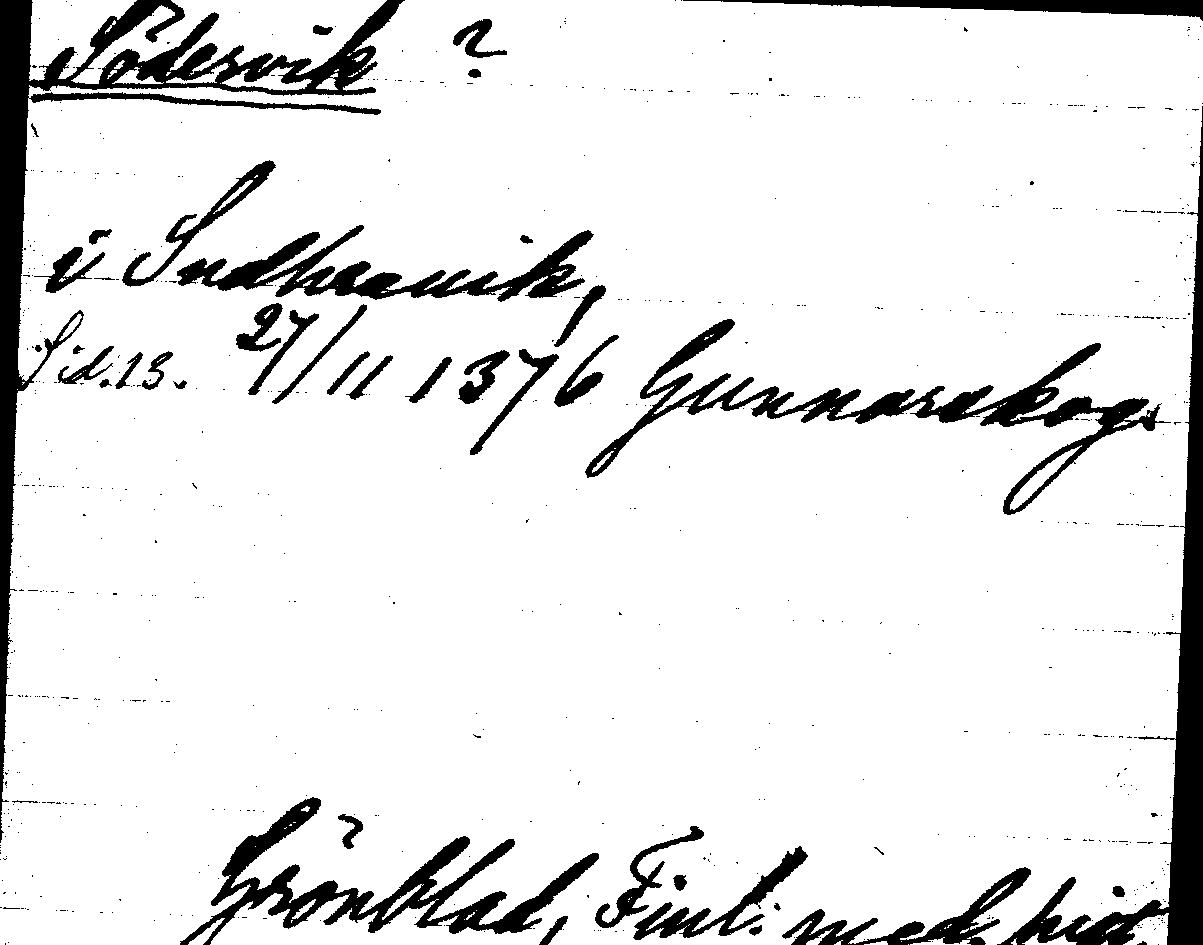 Södervik ?
i Sudhrauik,
Sid. 13. 27/11 1376 Gunnarskog.
Grönblad, Finl. med. hist.